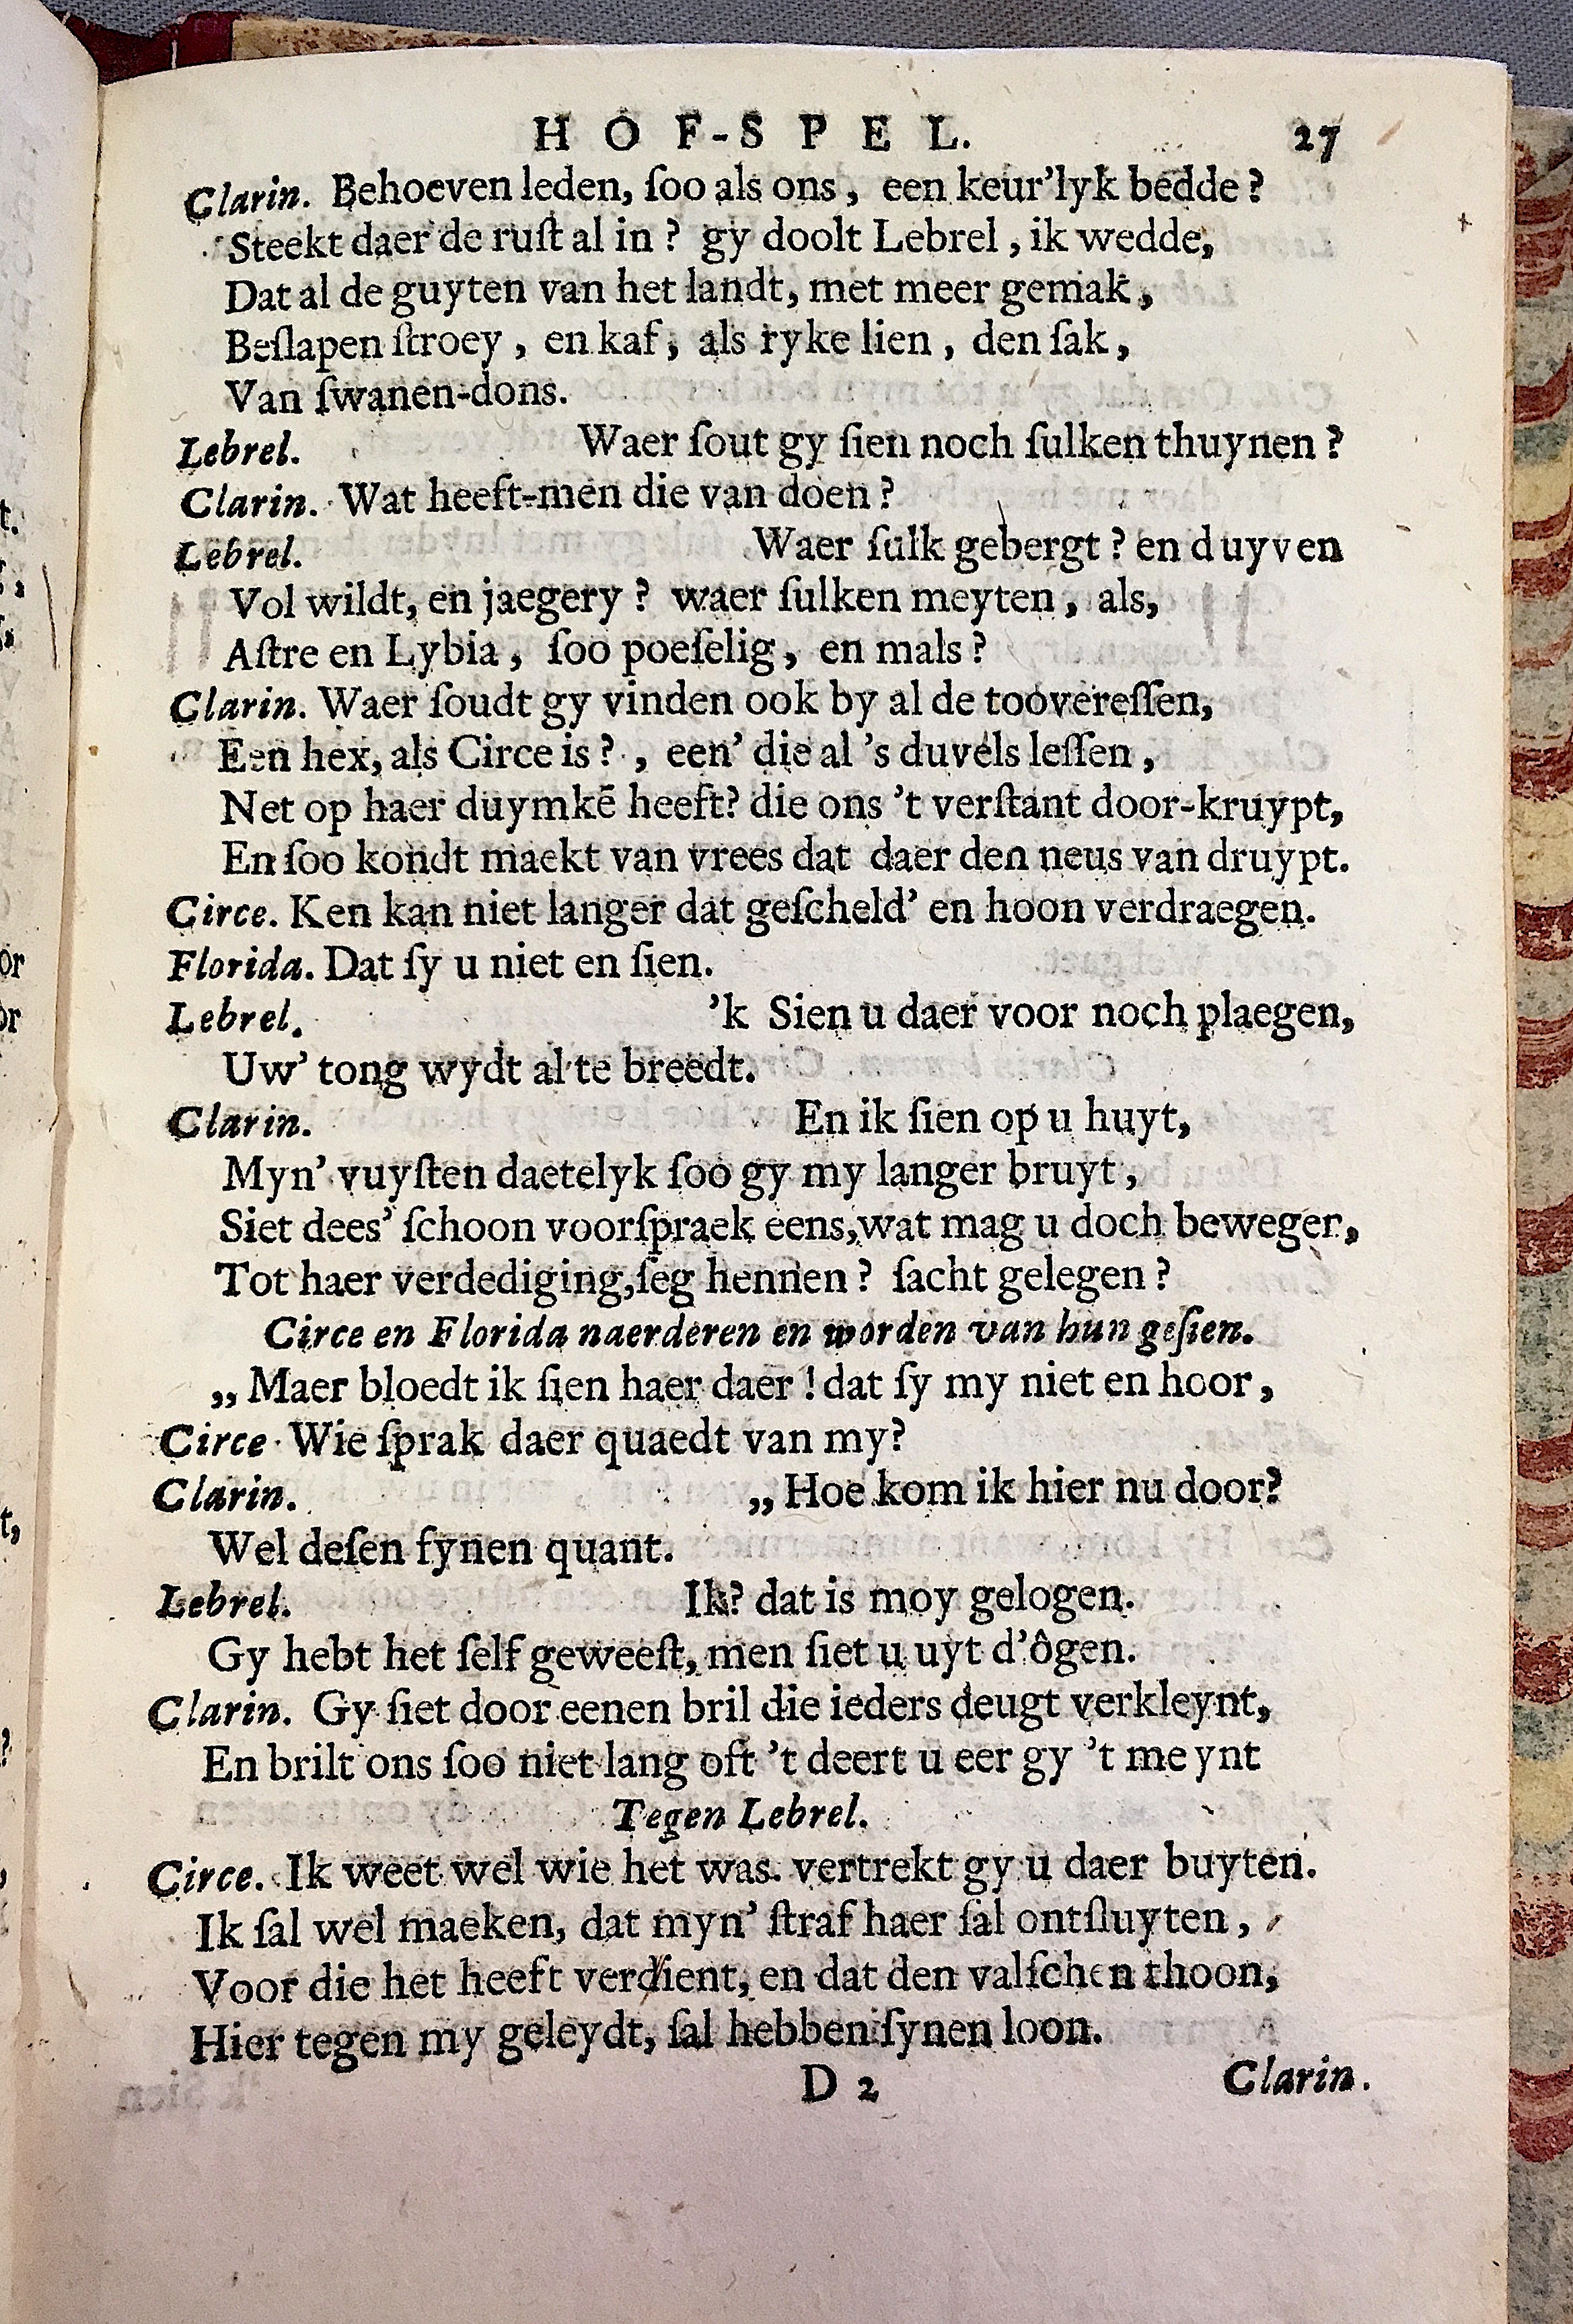 HOF-SPEL. 27
Clarin. Behoeven leden, ſoo als ons, een keur'lyk bedde?
Steekt daer de ruſt al in? gy doolt Lebrel, ik wedde,
Dat al de guyten van het landt, met meer gemak,
Beſlapen ſtroey, en kaf, als ryke lien, den ſak,
Van ſwanen-dons.
Lebrel. Waer ſout gy ſien noch ſulken thuynen?
Clarin. Wat heeft-men die van doen?
Lebrel. Waer ſulk gebergt? en duyven
Vol wildt, en jaegery? waer ſulken meyten, als,
Aſtre en Lybia, ſoo poeſelig, en mals?
Clarin. Waer ſoudt gy vinden ook by al de toovereſſen,
Een hex, als Circe is?, een' die al 's duvels leſſen,
Net op haer duymkē heeft? die ons 't verſtant door-kruypt,
En ſoo kondt maekt van vrees dat daer den neus van druypt.
Circe. Ken kan niet langer dat geſcheld' en hoon verdraegen.
Florida. Dat ſy u niet en ſien.
Lebrel. 'k Sien u daer voor noch plaegen,
Uw' tong wydt al te breedt.
Clarin. En ik ſien op u huyt,
Myn' vuyſten daetelyk ſoo gy my langer bruyt,
Siet dees' ſchoon voorſpraek eens, wat mag u doch beweger,
Tot haer verdediging, ſeg hennen? ſacht gelegen?
Circe en Florida naerderen en worden van hun geſien.
„Maer bloedt ik ſien haer daer! dat ſy my niet en hoor,
Circe Wie ſprak daer quaedt van my?
Clarin. „Hoe kom ik hier nu door?
Wel deſen fynen quant.
Lebrel. Ik? dat is moy gelogen.
Gy hebt het ſelf geweeſt, men ſiet u uyt d'ôgen.
Clarin. Gy ſiet door eenen bril die ieders deugt verkleynt,
En brilt ons ſoo niet lang oft 't deert u eer gy 't meynt
Tegen Lebrel.
Circe. Ik weet wel wie het was. vertrekt gy u daer buyten.
Ik ſal wel maeken, dat myn' ſtraf haer ſal ontſluyten,
Voor die het heeft verdient, en dat den valſchen thoon,
Hier tegen my geleydt, ſal hebben ſynen loon.
D 2 Clarin.